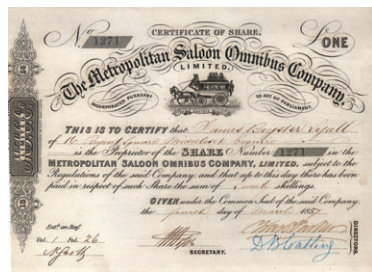 CERTIFICATE OF SHARE.
No 1271 £ONE
The Metropolitan Saloon Omnibus Company,
LIMITED.
INCORPORATED PURSUANT TO ACT OF PARLIAMENT.
THIS IS TO CERTIFY that James
of 16
is the Proprietor of the SHARE Number 1271 in the
METROPOLITAN SALOON OMNIBUS COMPANY, LIMITED, subject to the
Regulations of the said Company and that up to this day there has been
paid in respect of such Share the sum of shillings.
GIVEN under the Common Seal of the said Company,
the day of March 1857
DIRECTORS.
SECRETARY.
Entd. on Reg.
Vol. 1 Fol. 26